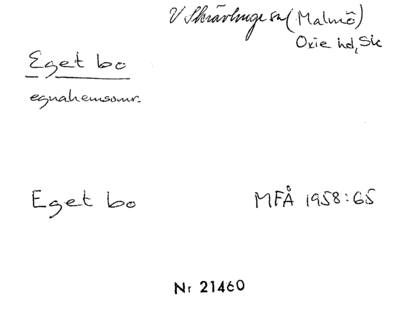 V Skrävlinge sn (Malmö)
Oxie hd, Sk
Eget bo
egnahemsomr.
Eget bo MFÅ 1958:65
Nr 21460